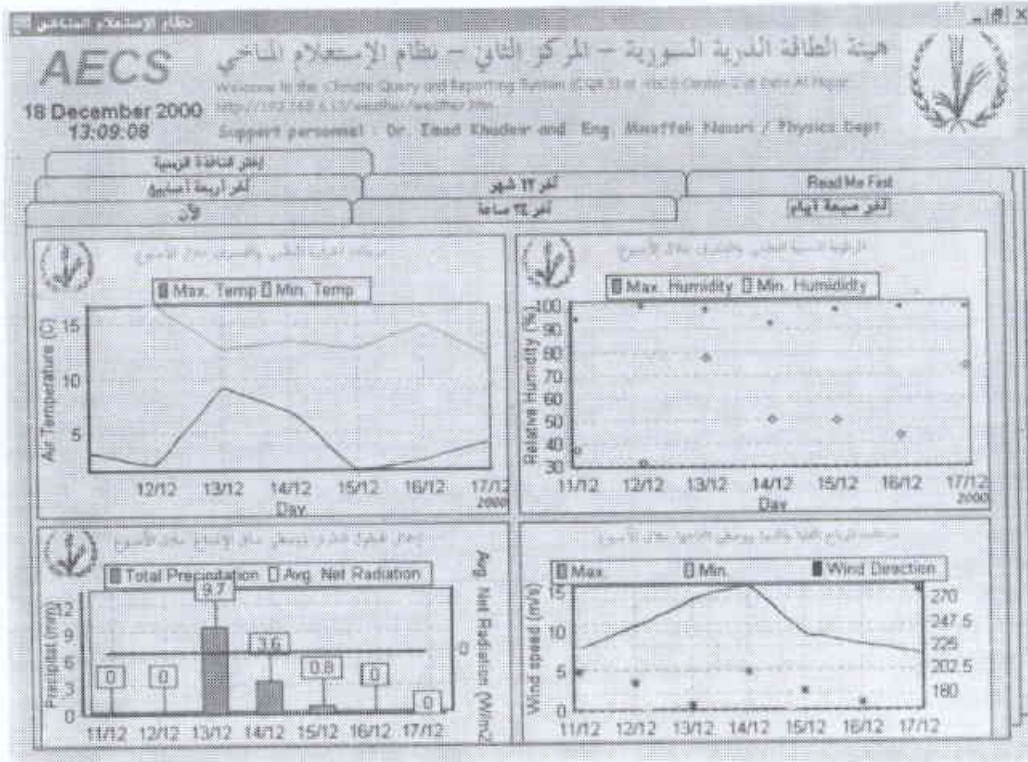 نظام الإستعلام المناخي
AECS
هيئة الطاقة الذرية السورية - المركز الثاني - نظام الإستعلام المناخي
Welcome to the Climatic Query and Reporting System
18 December 2000
13:09:08
Support personnel : Dr. Emad Khudeir and Eng. Nassri / Physics Dept
إختر النافذة الزمنية
آخر أربعة أسابيع
آخر ١٢ شهر
Read Me First
الآن
آخر ٢٤ ساعة
آخر سبعة أيام
خلال الأسبوع
Max. Temp Min. Temp
Air Temperature (C)
15
10
5
12/12 13/12 14/12 15/12 16/12 17/12
2000
Day
خلال الأسبوع
Max. Humidity Min. Humididty
Relative Humidity (%)
100
90
80
70
60
50
40
30
11/12 12/12 13/12 14/12 15/12 16/12 17/12
2000
Day
خلال الأسبوع
Total Precipidation Avg. Net Radiation
Precipitat (mm)
12
9
6
3
0
0 0 9.7 3.6 0.8 0 0
0
Avg. Net Radiation (W/m2)
11/12 12/12 13/12 14/12 15/12 16/12 17/12
خلال الأسبوع
Max. Min. Wind Direction
Wind speed (m/s)
15
10
5
0
270
247.5
225
202.5
180
11/12 12/12 13/12 14/12 15/12 16/12 17/12